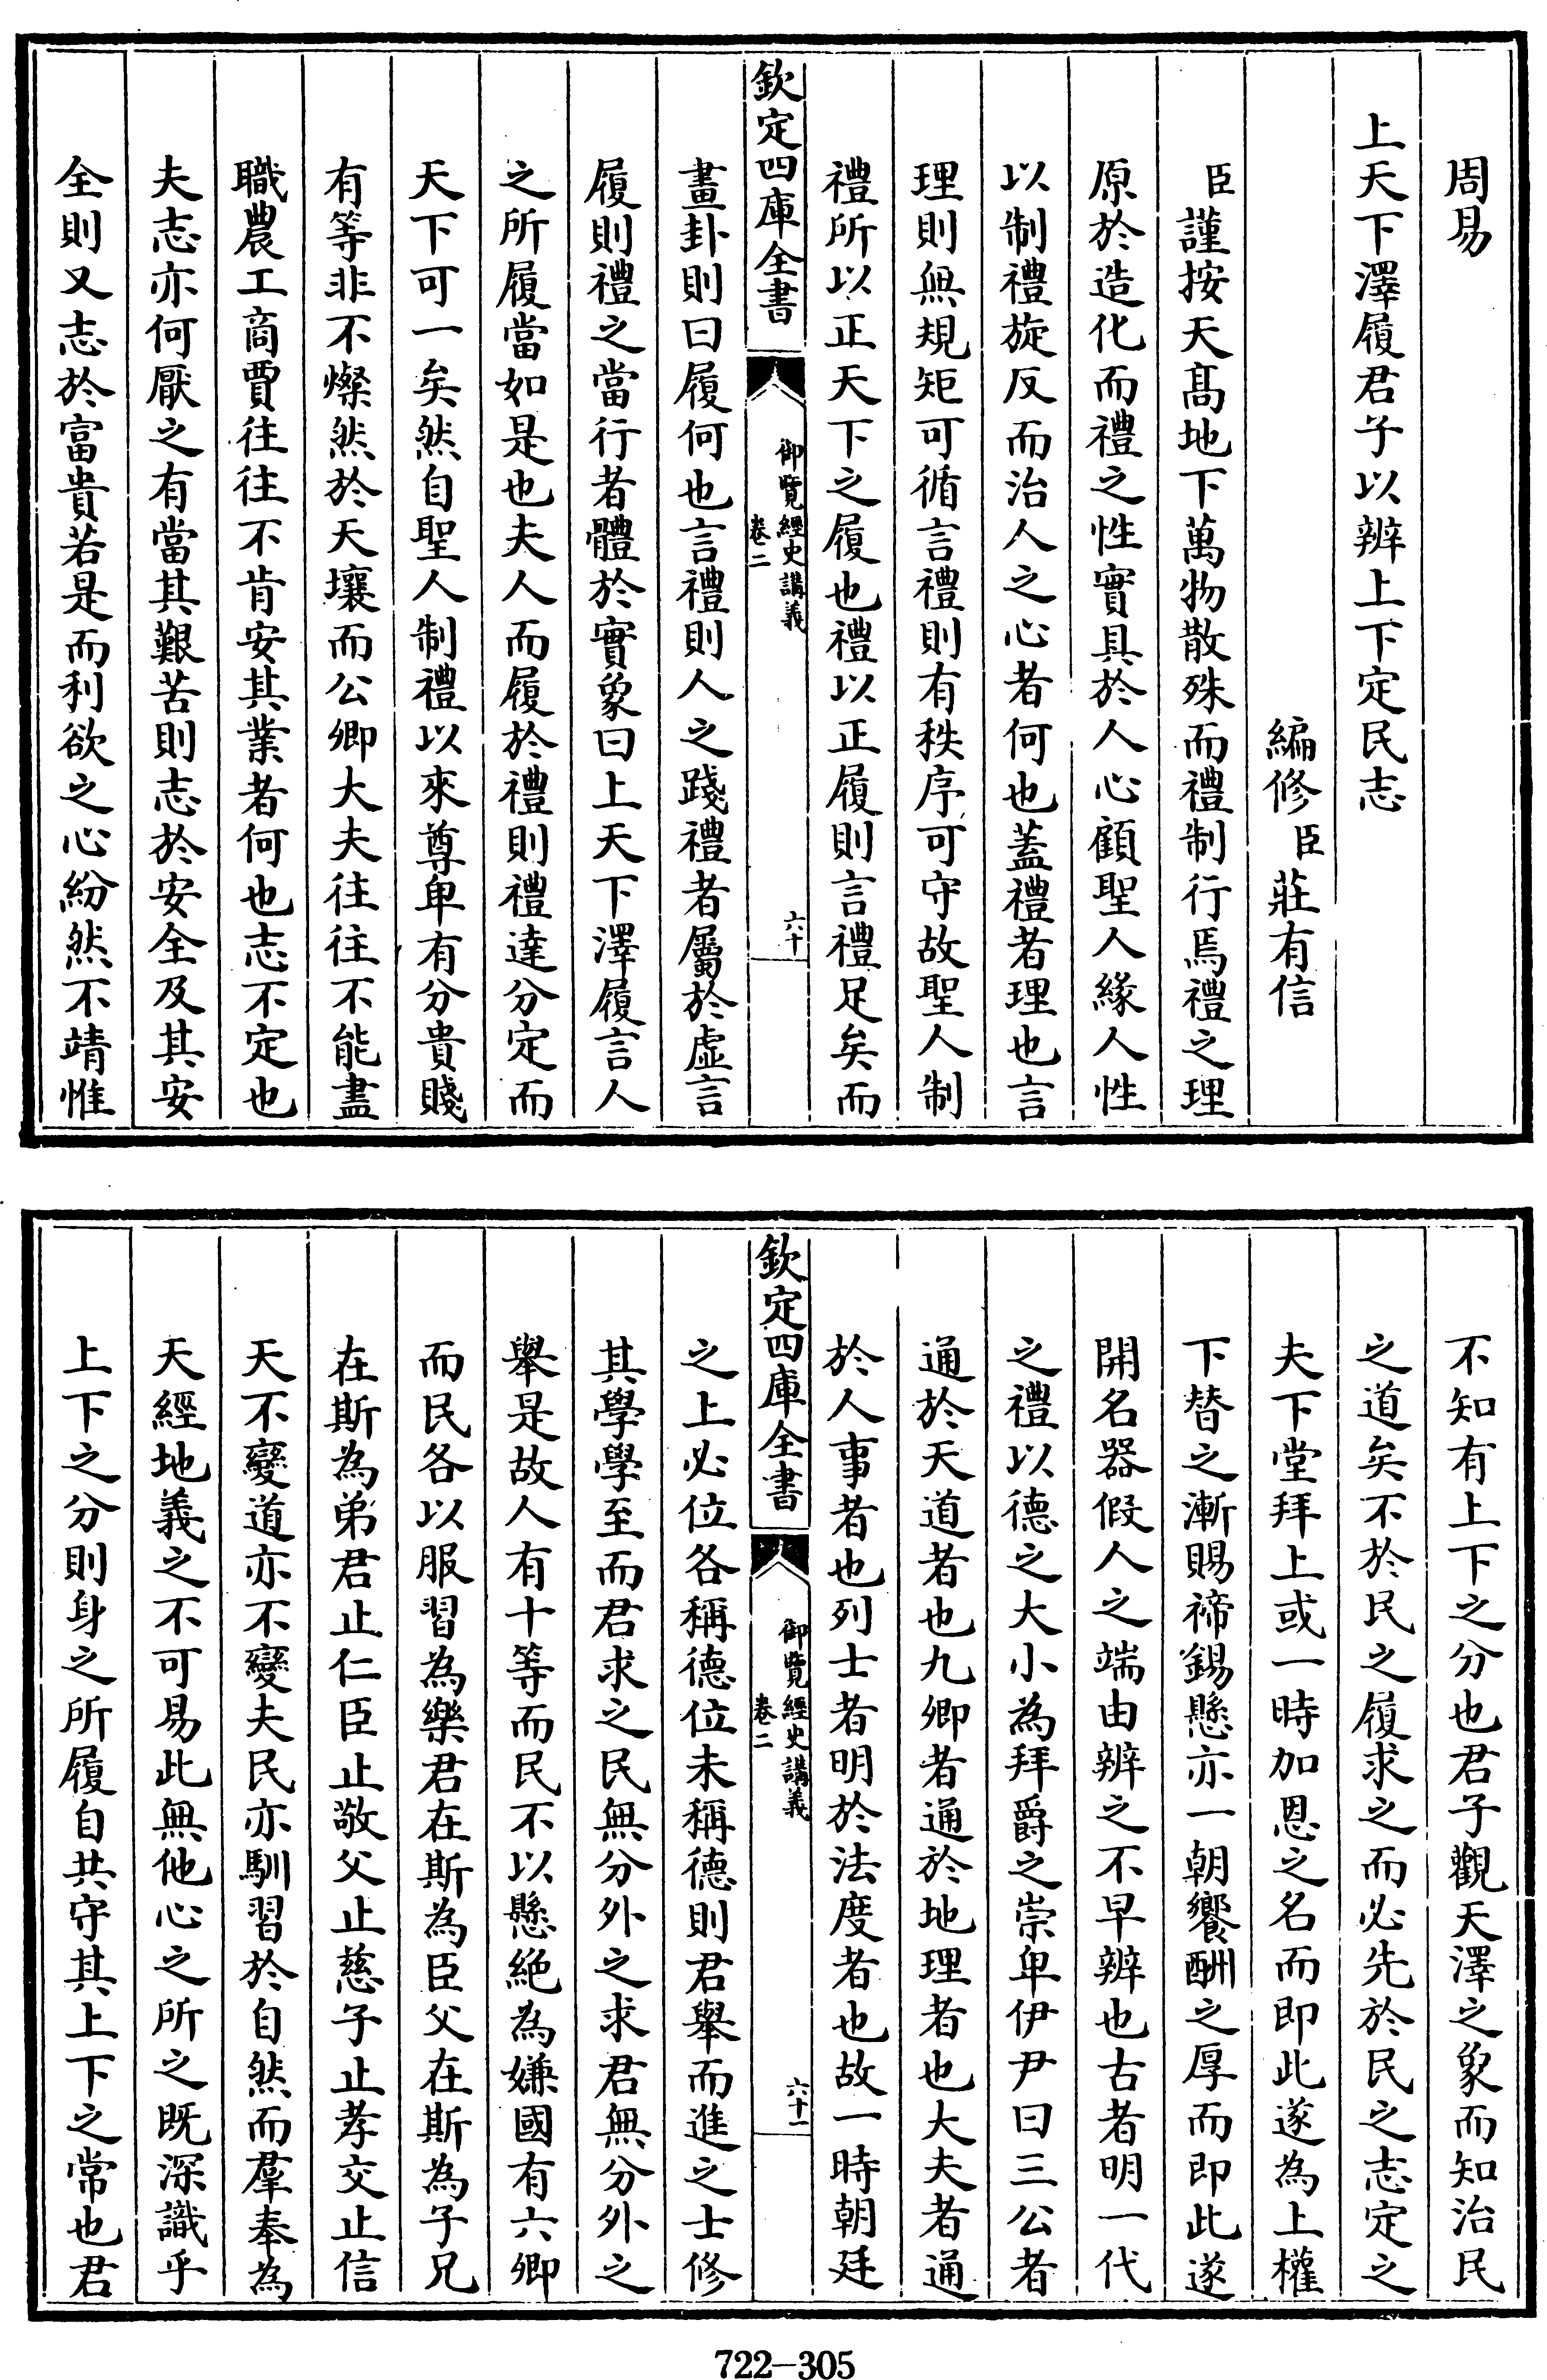 周易
上天下澤履君子以辨上下定民志
編修臣莊有信
臣謹按天髙地下萬物散殊而禮制行焉禮之理
原於造化而禮之性實具於人心顧聖人緣人性
以制禮旋反而治人之心者何也蓋禮者理也言
理則無規矩可循言禮則有秩序可守故聖人制
禮所以正天下之履也禮以正履則言禮足矣而
欽定四庫全書
御覽經史講義
卷二
六十
畫卦則曰履何也言禮則人之踐禮者屬於虛言
履則禮之當行者體於實象曰上天下澤履言人
之所履當如是也夫人而履於禮則禮達分定而
天下可一矣然自聖人制禮以來尊卑有分貴賤
有等非不燦然於天壤而公卿大夫往往不能盡
職農工商賈往往不肯安其業者何也志不定也
夫志亦何厭之有當其艱苦則志於安全及其安
全則又志於富貴若是而利欲之心紛然不靖惟
不知有上下之分也君子觀天澤之象而知治民
之道矣不於民之履求之而必先於民之志定之
夫下堂拜上或一時加恩之名而即此遂為上權
下替之漸賜禘錫懸亦一朝饗酬之厚而即此遂
開名器假人之端由辨之不早辨也古者明一代
之禮以德之大小為拜爵之崇卑伊尹曰三公者
通於天道者也九卿者通於地理者也大夫者通
於人事者也列士者明於法度者也故一時朝廷
欽定四庫全書
御覽經史講義
卷二
六十一
之上必位各稱德位未稱德則君舉而進之士修
其學學至而君求之民無分外之求君無分外之
舉是故人有十等而民不以懸絶為嫌國有六卿
而民各以服習為樂君在斯為臣父在斯為子兄
在斯為弟君止仁臣止敬父止慈子止孝交止信
天不變道亦不變夫民亦馴習於自然而羣奉為
天經地義之不可易此無他心之所之既深識乎
上下之分則身之所履自共守其上下之常也君
722-305